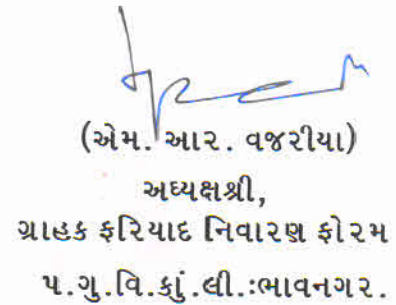 (એમ. આર. વજરીયા)
અધ્યક્ષશ્રી,
ગ્રાહક ફરિયાદ નિવારણ ફોરમ
પ.ગુ.વિ.કાું.લી.:ભાવનગર.